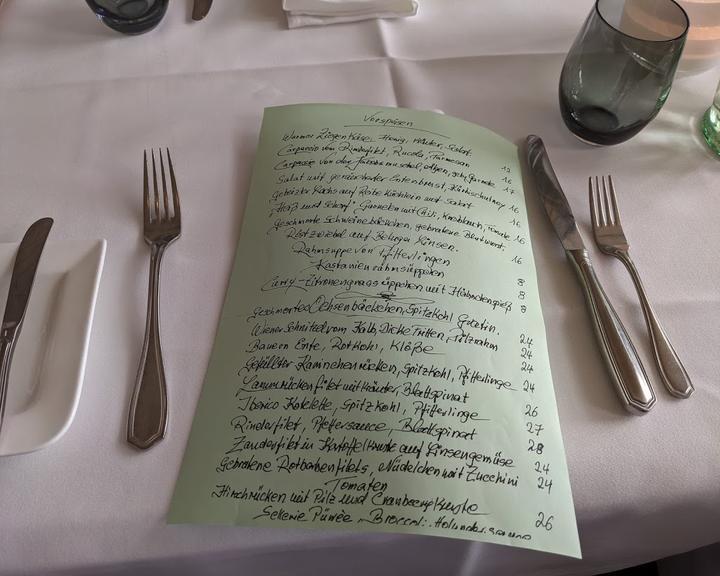 Vorspeisen
Warmer Ziegenkäse, Honig, Kräuter, Salat 12
Carpaccio vom Rinderfilet, Rucola, Parmesan 16
Carpaccio von der Jakobsmuschel, 17
Salat mit geräucherter Entenbrust, 16
gebeizter Lachs auf Rote Küchlein und Salat 16
"Heiß und Scharf" Garnelen mit Chili, Knoblauch, Tomate 16
geschmorte Schweinebäckchen, gebratene Blutwurst
Röstzwiebel auf Beluga Linsen. 16
Rahmsuppe von Pfifferlingen 8
Kastanienrahmsüppchen 8
Curry-Zitronengrassüppchen mit Hähnchenspieß 8
geschmortes Ochsenbäckchen, Spitzkohl Gratin. 24
Wiener Schnitzel vom Kalb, Dicke Fritten, Pilzrahm 24
Bauern Ente, Rotkohl, Klöße 24
Gefüllter Kaninchenrücken, Spitzkohl, Pfifferlinge 24
Lammrückenfilet mit Kräuter, Blattspinat 26
Iberico Kotelette, Spitzkohl, Pfifferlinge 27
Rinderfilet, Pfeffersauce, Blattspinat 28
Zanderfilet in Kartoffelkruste auf Linsengemüse 24
Gebratene Rotbarbenfilets, Nüdelchen mit Zucchini 24
Tomaten
Hirschrücken mit Pilz und Cranberrykruste 26
Sellerie Pürree, Broccoli,